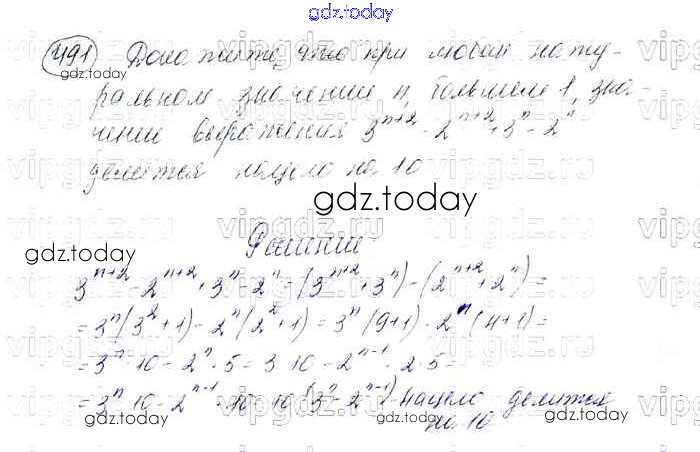 gdz.today
491 Докажите, что при любом нату-
gdz.today
ральном значении n, большем 1, зна-
чение выражения 3^{n+2} - 2^{n+2} + 3^n - 2^n
делится нацело на 10
gdz.today
Решение
gdz.today
3^{n+2} - 2^{n+2} + 3^n - 2^n = (3^{n+2} + 3^n) - (2^{n+2} + 2^n) =
= 3^n (3^2 + 1) - 2^n (2^2 + 1) = 3^n (9+1) - 2^n (4+1) =
= 3^n · 10 - 2^n · 5 = 3 10 - 2^{n-1} · 2 · 5 =
= 3^n 10 - 2^{n-1} · 10 = 10 (3^n - 2^{n-1}) - нацело делится
на 10
gdz.today
gdz.today